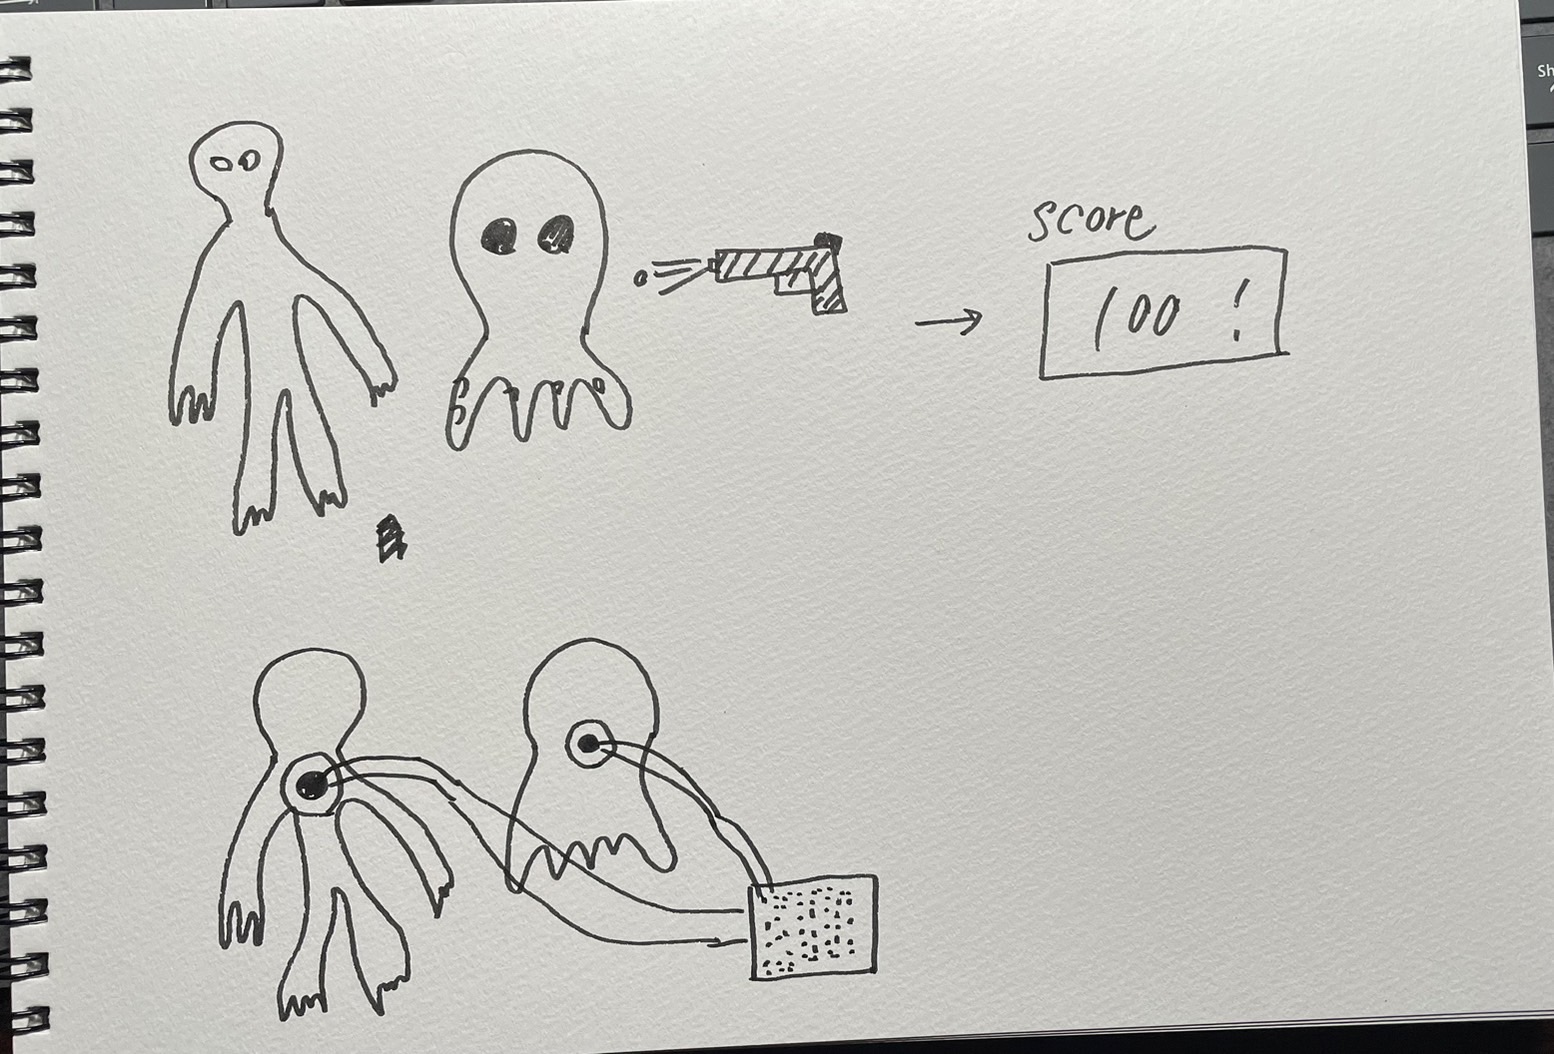 score
100 !
Sh